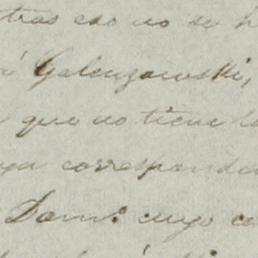 tras eso no se h
Galenzowski,
que no tiene l
ya corresponda
Domo. cuyo co